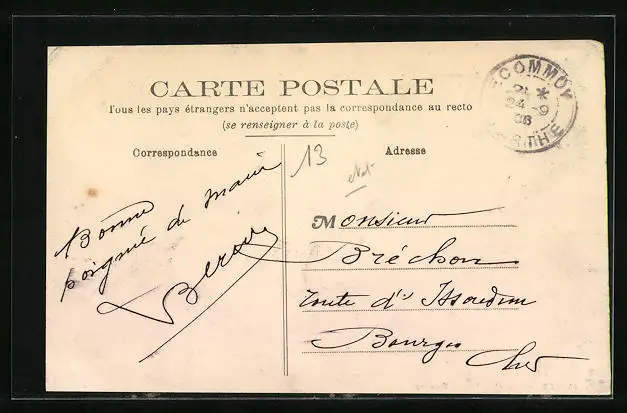 CARTE POSTALE
Tous les pays étrangers n'acceptent pas la correspondance au recto
(se renseigner à la poste)
Correspondance
Adresse
13
ECOMMOY
24-9
06
SARTHE
Bonne
poignée de main
Monsieur
Bréchon
route d'Issoudun
Bourges
Cher